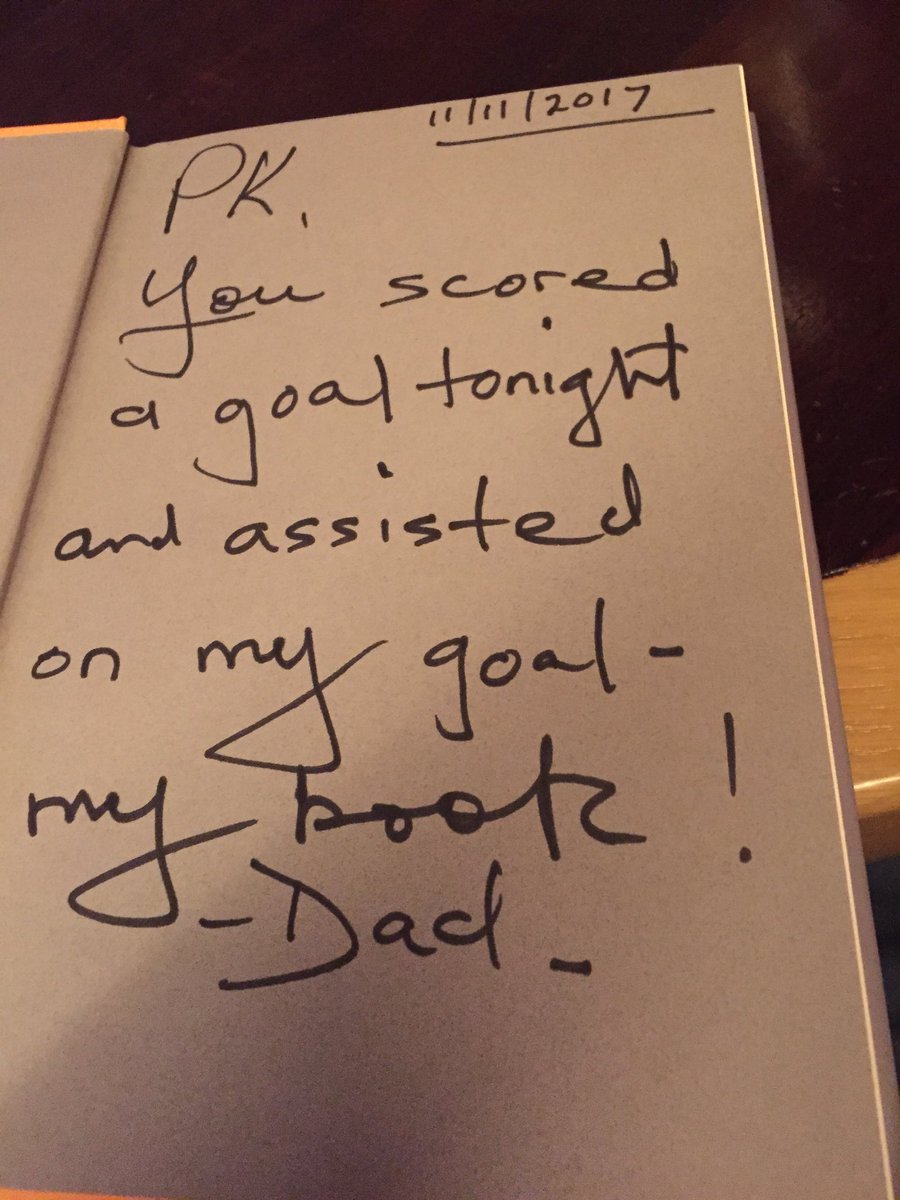 11/11/2017
PK,
You scored
a goal tonight
and assisted
on my goal-
my book!
-Dad-